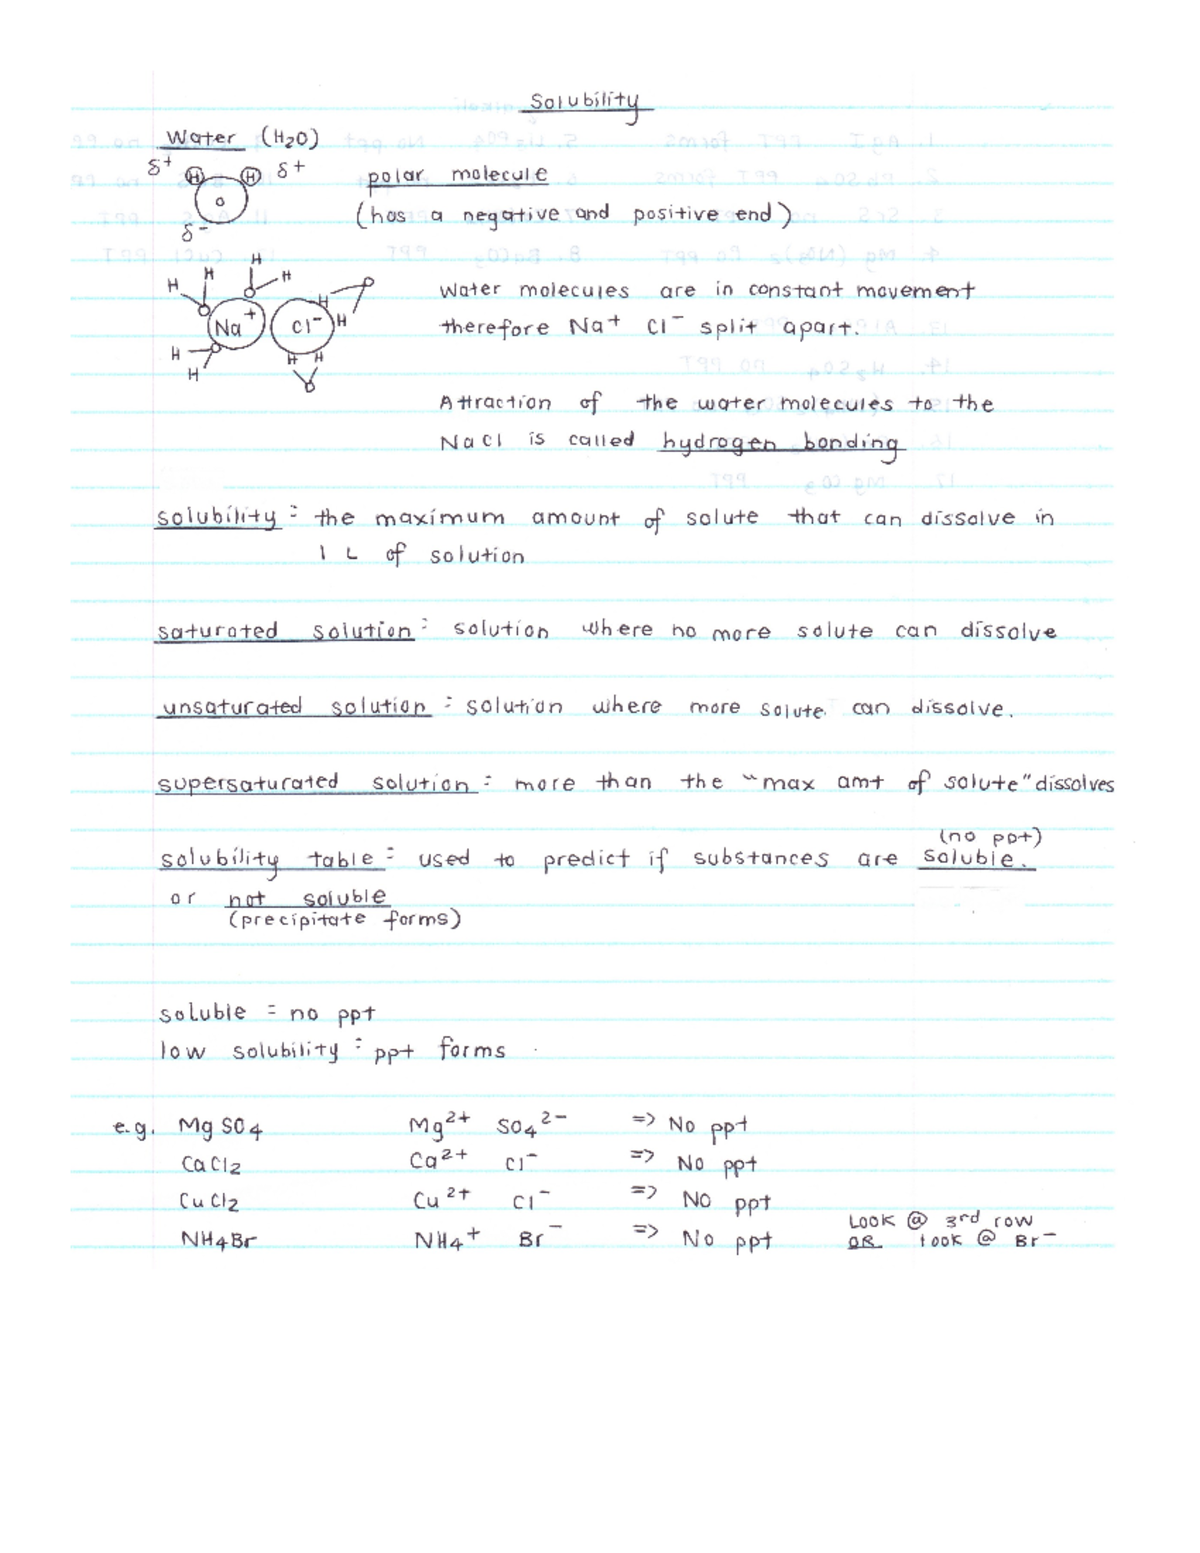 Solubility
Water (H2O)
δ+ H H δ+
O
δ-
polar molecule
(has a negative and positive end)
H H H H
Na+ Cl- H H
H H H H
Water molecules are in constant movement
therefore Na+ Cl- split apart.
Attraction of the water molecules to the
NaCl is called hydrogen bonding
solubility : the maximum amount of solute that can dissolve in
1 L of solution
saturated solution : solution where no more solute can dissolve
unsaturated solution : solution where more solute can dissolve.
supersaturated solution : more than the "max amt of solute" dissolves
(no ppt)
solubility table : used to predict if substances are soluble.
or not soluble
(precipitate forms)
soluble = no ppt
low solubility : ppt forms
e.g. MgSO4 Mg2+ SO4 2- => No ppt
CaCl2 Ca2+ Cl- => No ppt
CuCl2 Cu2+ Cl- => No ppt
NH4Br NH4+ Br- => No ppt
Look @ 3rd row
OR look @ Br-